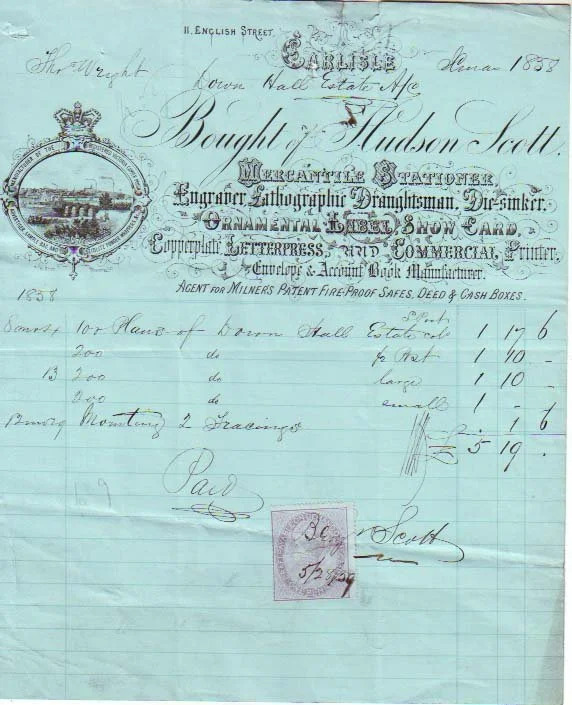 11. ENGLISH STREET.
CARLISLE
Xmas 1858
Thos Wright
Down Hall Estate A/c
Bought of Hudson Scott.
MERCANTILE STATIONER
Engraver, Lithographic Draughtsman, Die-sinker,
ORNAMENTAL LABEL, SHOW CARD,
Copperplate LETTERPRESS, AND COMMERCIAL Printer,
Envelope & Account Book Manufacturer.
AGENT FOR MILNER'S PATENT FIRE-PROOF SAFES, DEED & CASH BOXES.
MANUFACTURER OF THE
1858
100 Plans of Down Hall Estate 1 17 6
200 do 1 10 -
13 200 do large 1 10 -
200 do small 1 - -
Mounting 2 Tracings 1 6
£ 5 19 .
Paid
Scott
5/2/59